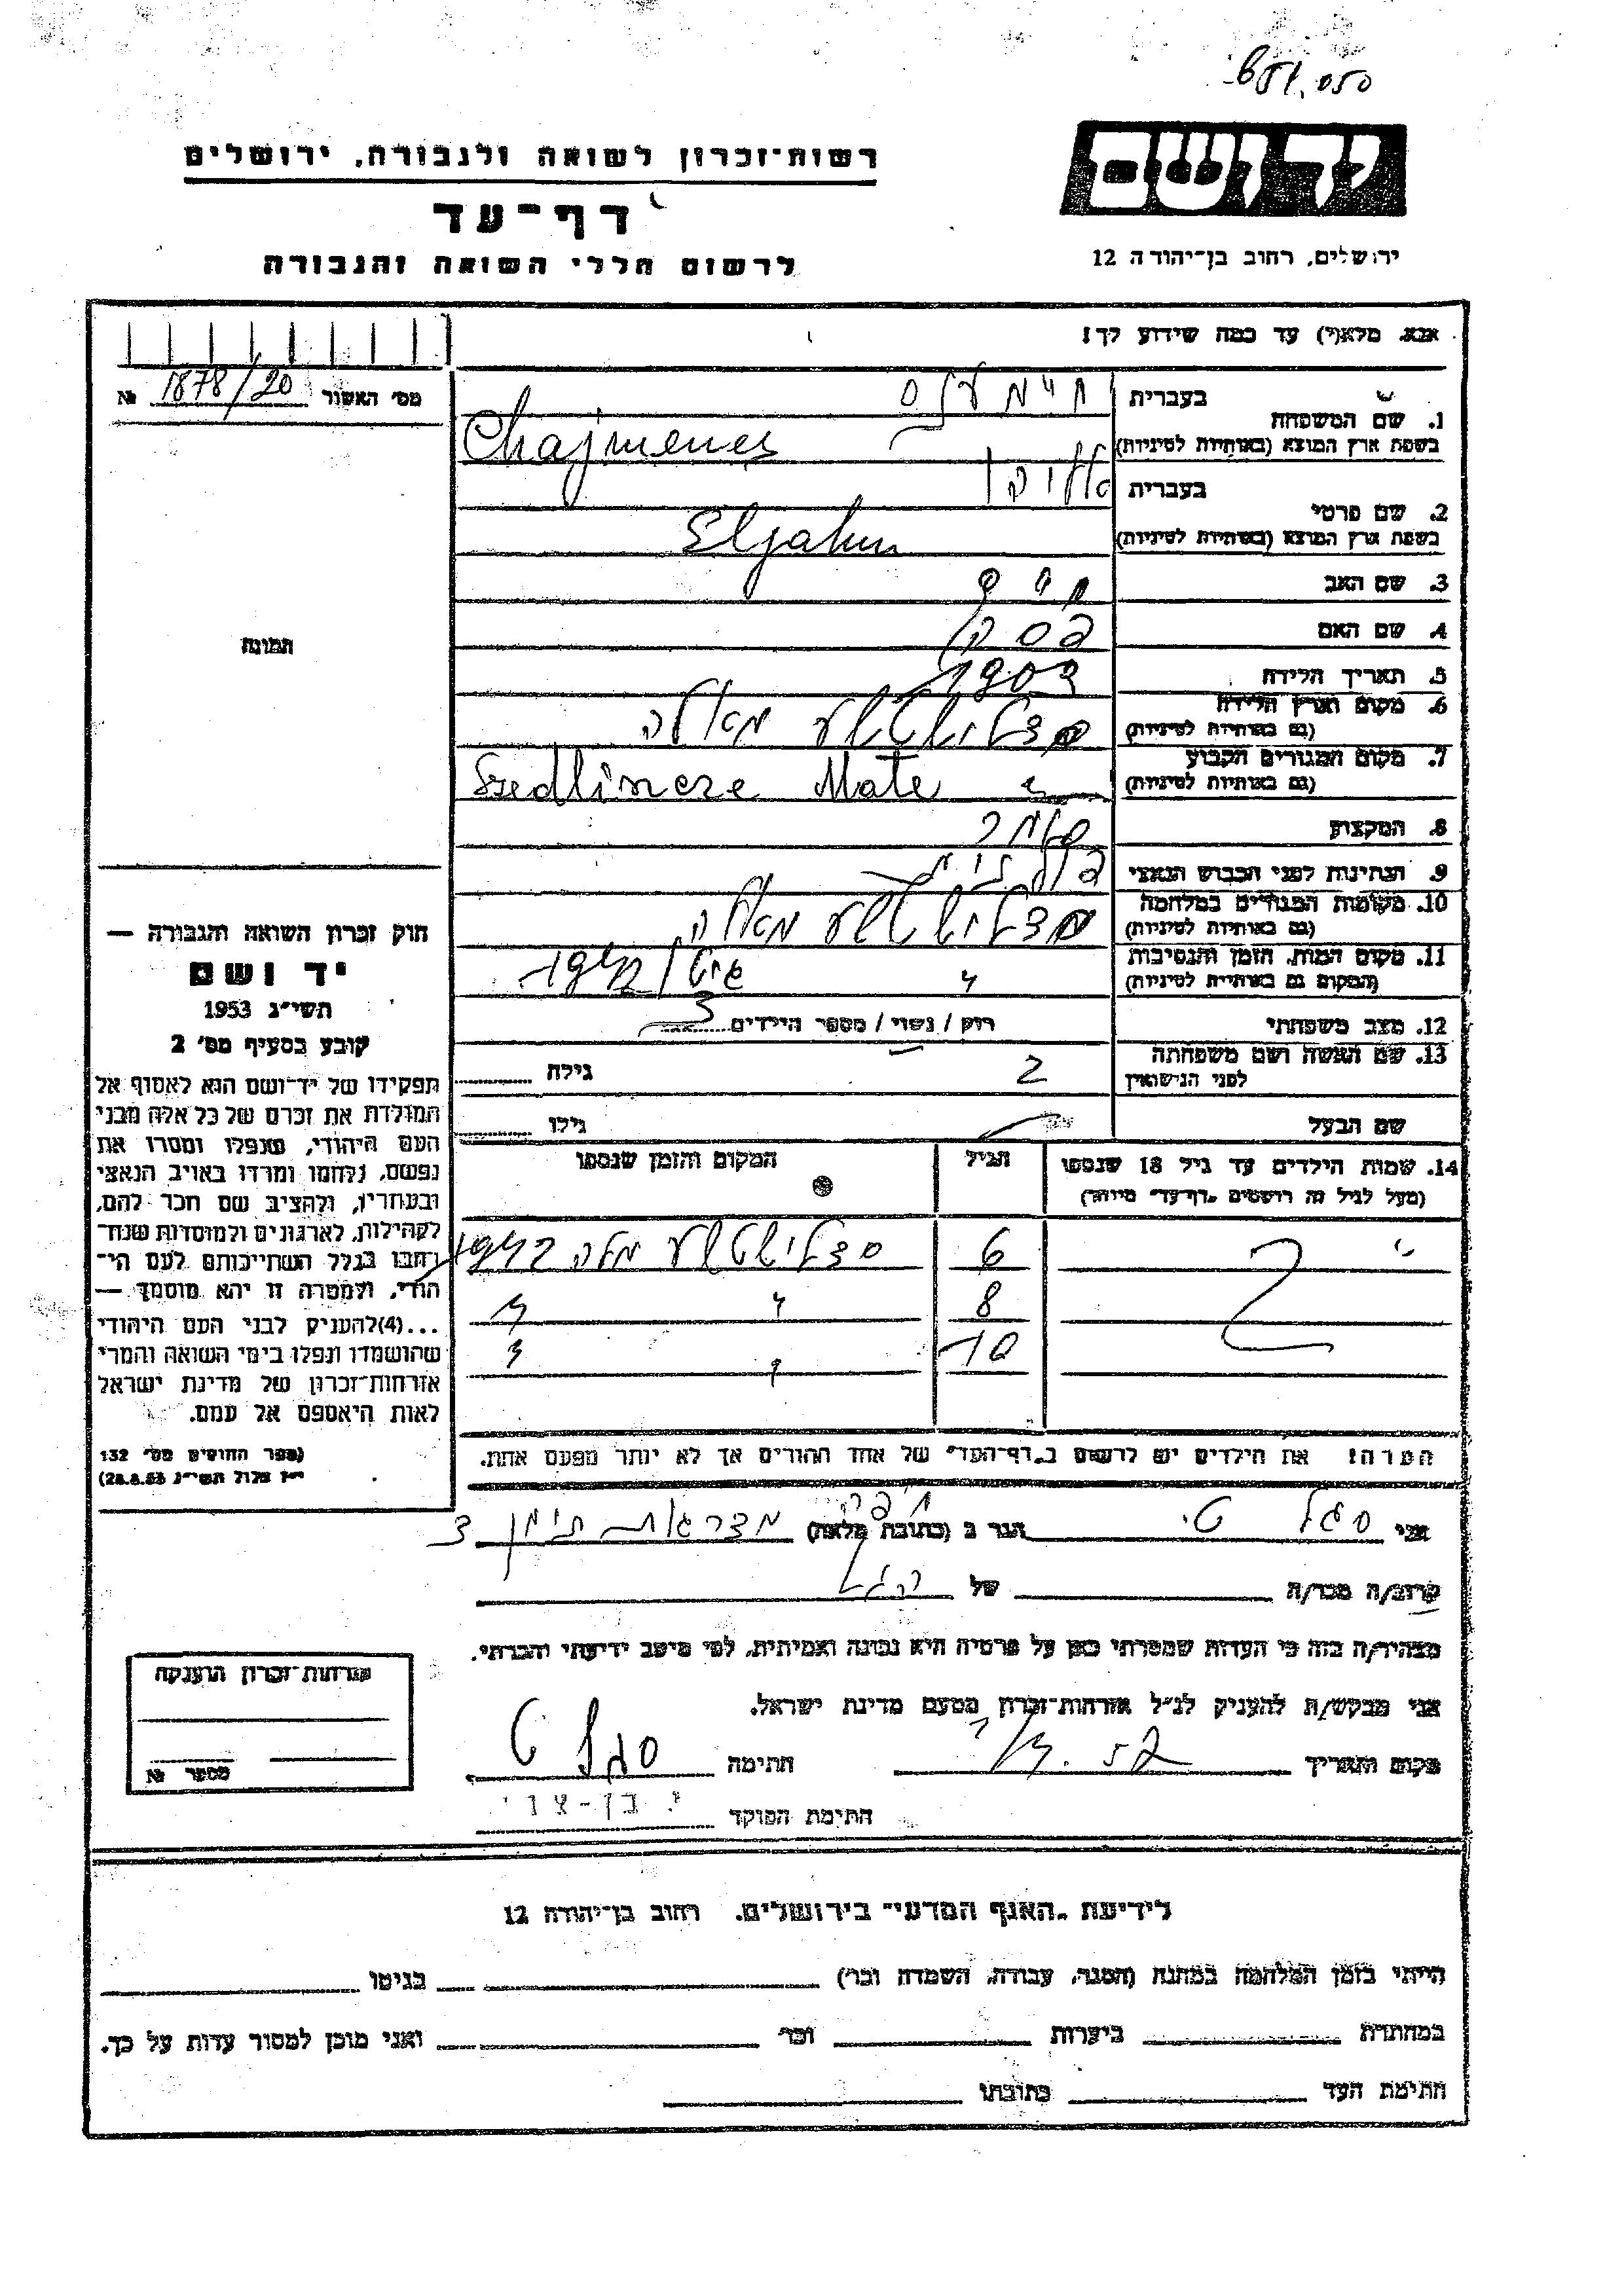 רשות־זכרון לשואה ולגבורה, ירושלים
דף־עד
לרשום חללי השואה והגבורה
יד ושם
ירושלים, רחוב בן־יהודה 12
אנא, מלא(י) עד כמה שידוע לך!
מס' האשור 1878/20 №
תמונה
1. שם המשפחה
בעברית
בשפת ארץ המוצא (באותיות לטיניות) Chajmenes
2. שם פרטי
בעברית
בשפת ארץ המוצא (באותיות לטיניות) Eljahu
3. שם האב
4. שם האם
5. תאריך הלידה 1902
6. מקום וארץ הלידה
(גם באותיות לטיניות)
7. מקום המגורים הקבוע
(גם באותיות לטיניות) Szedlincze Mate
8. המקצוע סוחר
9. הנתינות לפני הכבוש הנאצי פולנית
10. מקומות המגורים במלחמה
(גם באותיות לטיניות)
11. מקום המות, הזמן והנסיבות
(המקום גם באותיות לטיניות) 1942
12. מצב משפחתי רווק / נשוי / מספר הילדים 3
13. שם האשה ושם משפחתה
לפני הנישואין גילה
שם הבעל גילו
14. שמות הילדים עד גיל 18 שנספו
(מעל לגיל זה רושמים "דף־עד" מיוחד)
הגיל
המקום והזמן שנספו
6 1942
8
10
הערה: את הילדים יש לרשום ב"דף־העד" של אחד ההורים אך לא יותר מפעם אחת.
חוק זכרון השואה והגבורה —
יד ושם
תשי"ג 1953
קובע בסעיף מס' 2
תפקידו של יד־ושם הוא לאסוף אל
המולדת את זכרם של כל אלה מבני
העם היהודי, שנפלו ומסרו את
נפשם, נלחמו ומרדו באויב הנאצי
ובעוזריו, ולהציב שם וזכר להם,
לקהילות, לארגונים ולמוסדות שנח־
רבו בגלל השתייכותם לעם הי־
הודי, ולמטרה זו יהא מוסמך —
...(4)להעניק לבני העם היהודי
שהושמדו ונפלו בימי השואה והמרי
אזרחות־זכרון של מדינת ישראל
לאות היאספם אל עמם.
(ספר החוקים מס' 132
י"ז אלול תשי"ג 28.8.53)
אני סגל טי. הגר ב (כתובת מלאה) חיפה מדרגות תימן 3
קרוב/ה מכר/ה של
מצהיר/ה בזה כי העדות שמסרתי כאן על פרטיה היא נכונה ואמיתית, לפי מיטב ידיעתי והכרתי.
אני מבקש/ת להעניק לנ"ל אזרחות־זכרון מטעם מדינת ישראל.
מקום ותאריך חתימה סגל ט
חתימת הפוקד י. בן-צבי
אזרחות־זכרון הוענקה
מספר №
לידיעת "האגף המדעי" בירושלים, רחוב בן־יהודה 12
הייתי בזמן המלחמה במחנה (הסגר, עבודה, השמדה וכו') בגיטו
במחתרת ביערות וכו' ואני מוכן למסור עדות על כך.
חתימת העד כתובתו